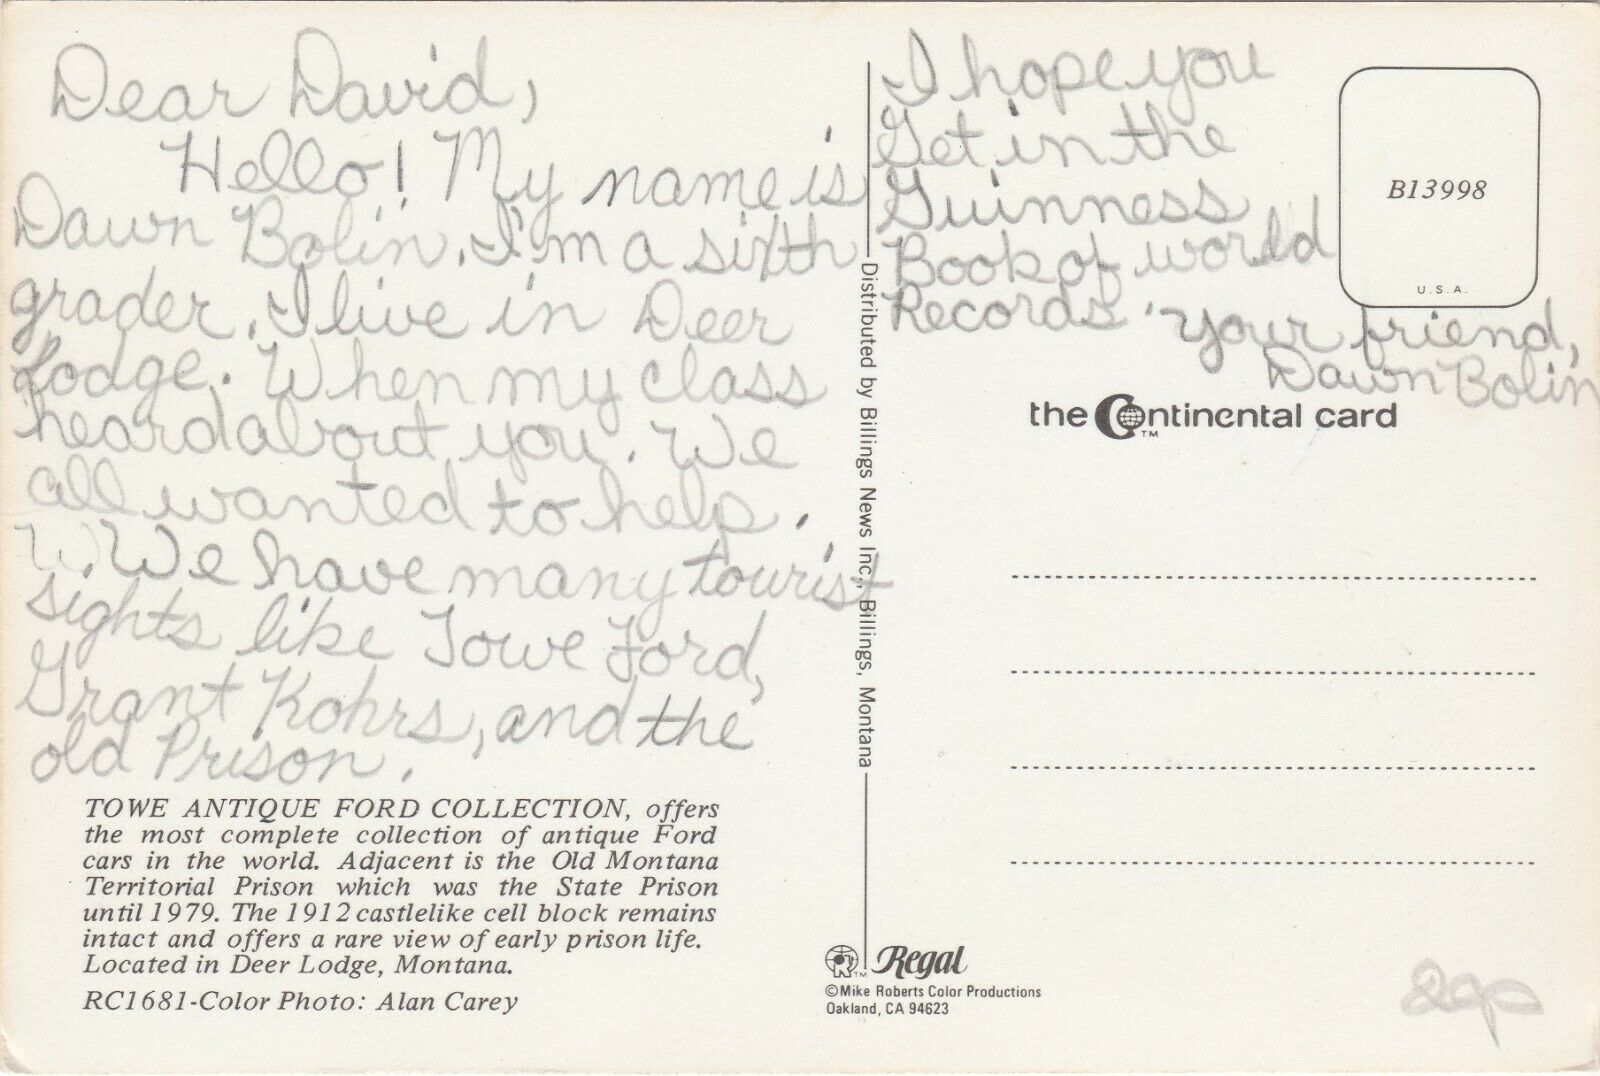 Dear David,
Hello! My name is
Dawn Bolin. I'm a sixth
grader. I live in Deer
Lodge. When my class
heard about you. We
all wanted to help.
We have many tourist
sights like Towe Ford,
Grant Kohrs, and the
old Prison.
TOWE ANTIQUE FORD COLLECTION, offers
the most complete collection of antique Ford
cars in the world. Adjacent is the Old Montana
Territorial Prison which was the State Prison
until 1979. The 1912 castlelike cell block remains
intact and offers a rare view of early prison life.
Located in Deer Lodge, Montana.
RC1681-Color Photo: Alan Carey
Distributed by Billings News Inc., Billings, Montana
I hope you
Get in the
Guinness
Book of world
Records. Your friend,
Dawn Bolin
B13998
U.S.A.
the Continental card
TM
R TM Regal
©Mike Roberts Color Productions
Oakland, CA 94623